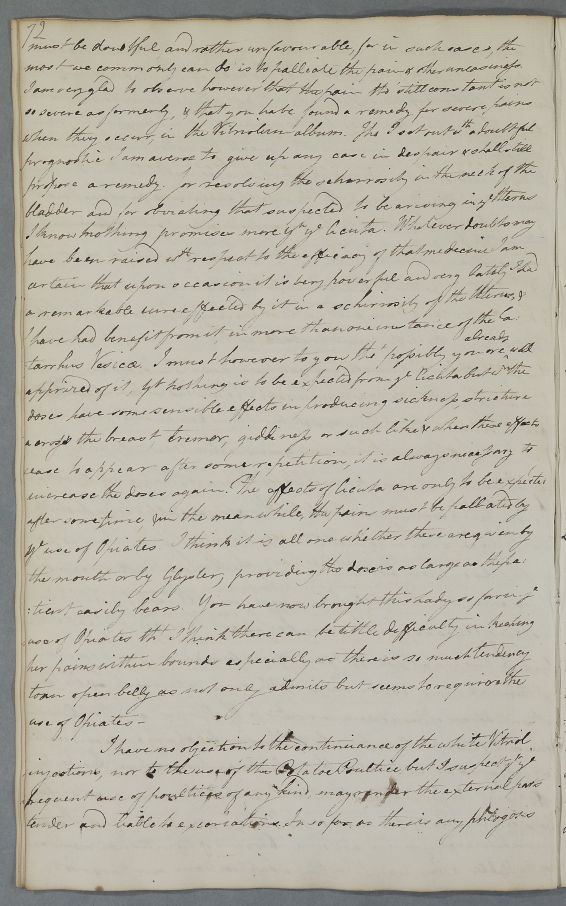 72
must be doubtful and rather unfavourable, for in such cases, the
most we commonly can do is to palliate the pain & other uneasiness.
I am very glad to observe however that the pain tho still constant is not
so severe as formerly, & that you have found a remedy for severe pains
when they occur, in the Vitriolum album. Tho I set out wth a doubtful
prognostic I am averse to give up any case in despair & shall still
propose a remedy. for resolving the schirrosity in the neck of the
bladder and for obviating that suspected to be arising in ye Uterus
I know nothing promises more yn ye Cicuta. Whatever doubts may
have been raised wth respect to the efficacy of that medicine I am
certain that upon occasion it is very powerful and very lately I had
a remarkable cure effected by it in a schirrosity of the Uterus, &
I have had benefit from it in more than one instance of the Ca:
tarrhus Vesicæ. I must however to you tho' possibly you are already well
apprized of it, yt nothing is to be expected from ye Cicuta but wn the
doses have some sensible effects in producing sickness stricture
across the breast tremor, giddiness or such like & when these effects
cease to appear after some repetition, it is always necessary to
increase the doses again. The effects of Cicuta are only to be expected
after some time & in the meanwhile, the pain must be palliated by
ye use of Opiates. I think it is all one whether these are given by
the mouth or by Glyster, providing the dose is as large as the pa:
:tient easily bears. You have now brought this lady so far in ye
use of Opiates tht I think there can be little difficulty in keeping
her pains within bounds especially as there is so much tendency
to an open belly as not only admits but seems to require the
use of Opiates –
I have no objection to the continuance of the white Vitriol
injections, nor to the use of the Potatoe Poultice but I suspect yt ye
frequent use of poultices of any kind, may render the external parts
tender and liable to excoriations. In so far as there is any phlogosis